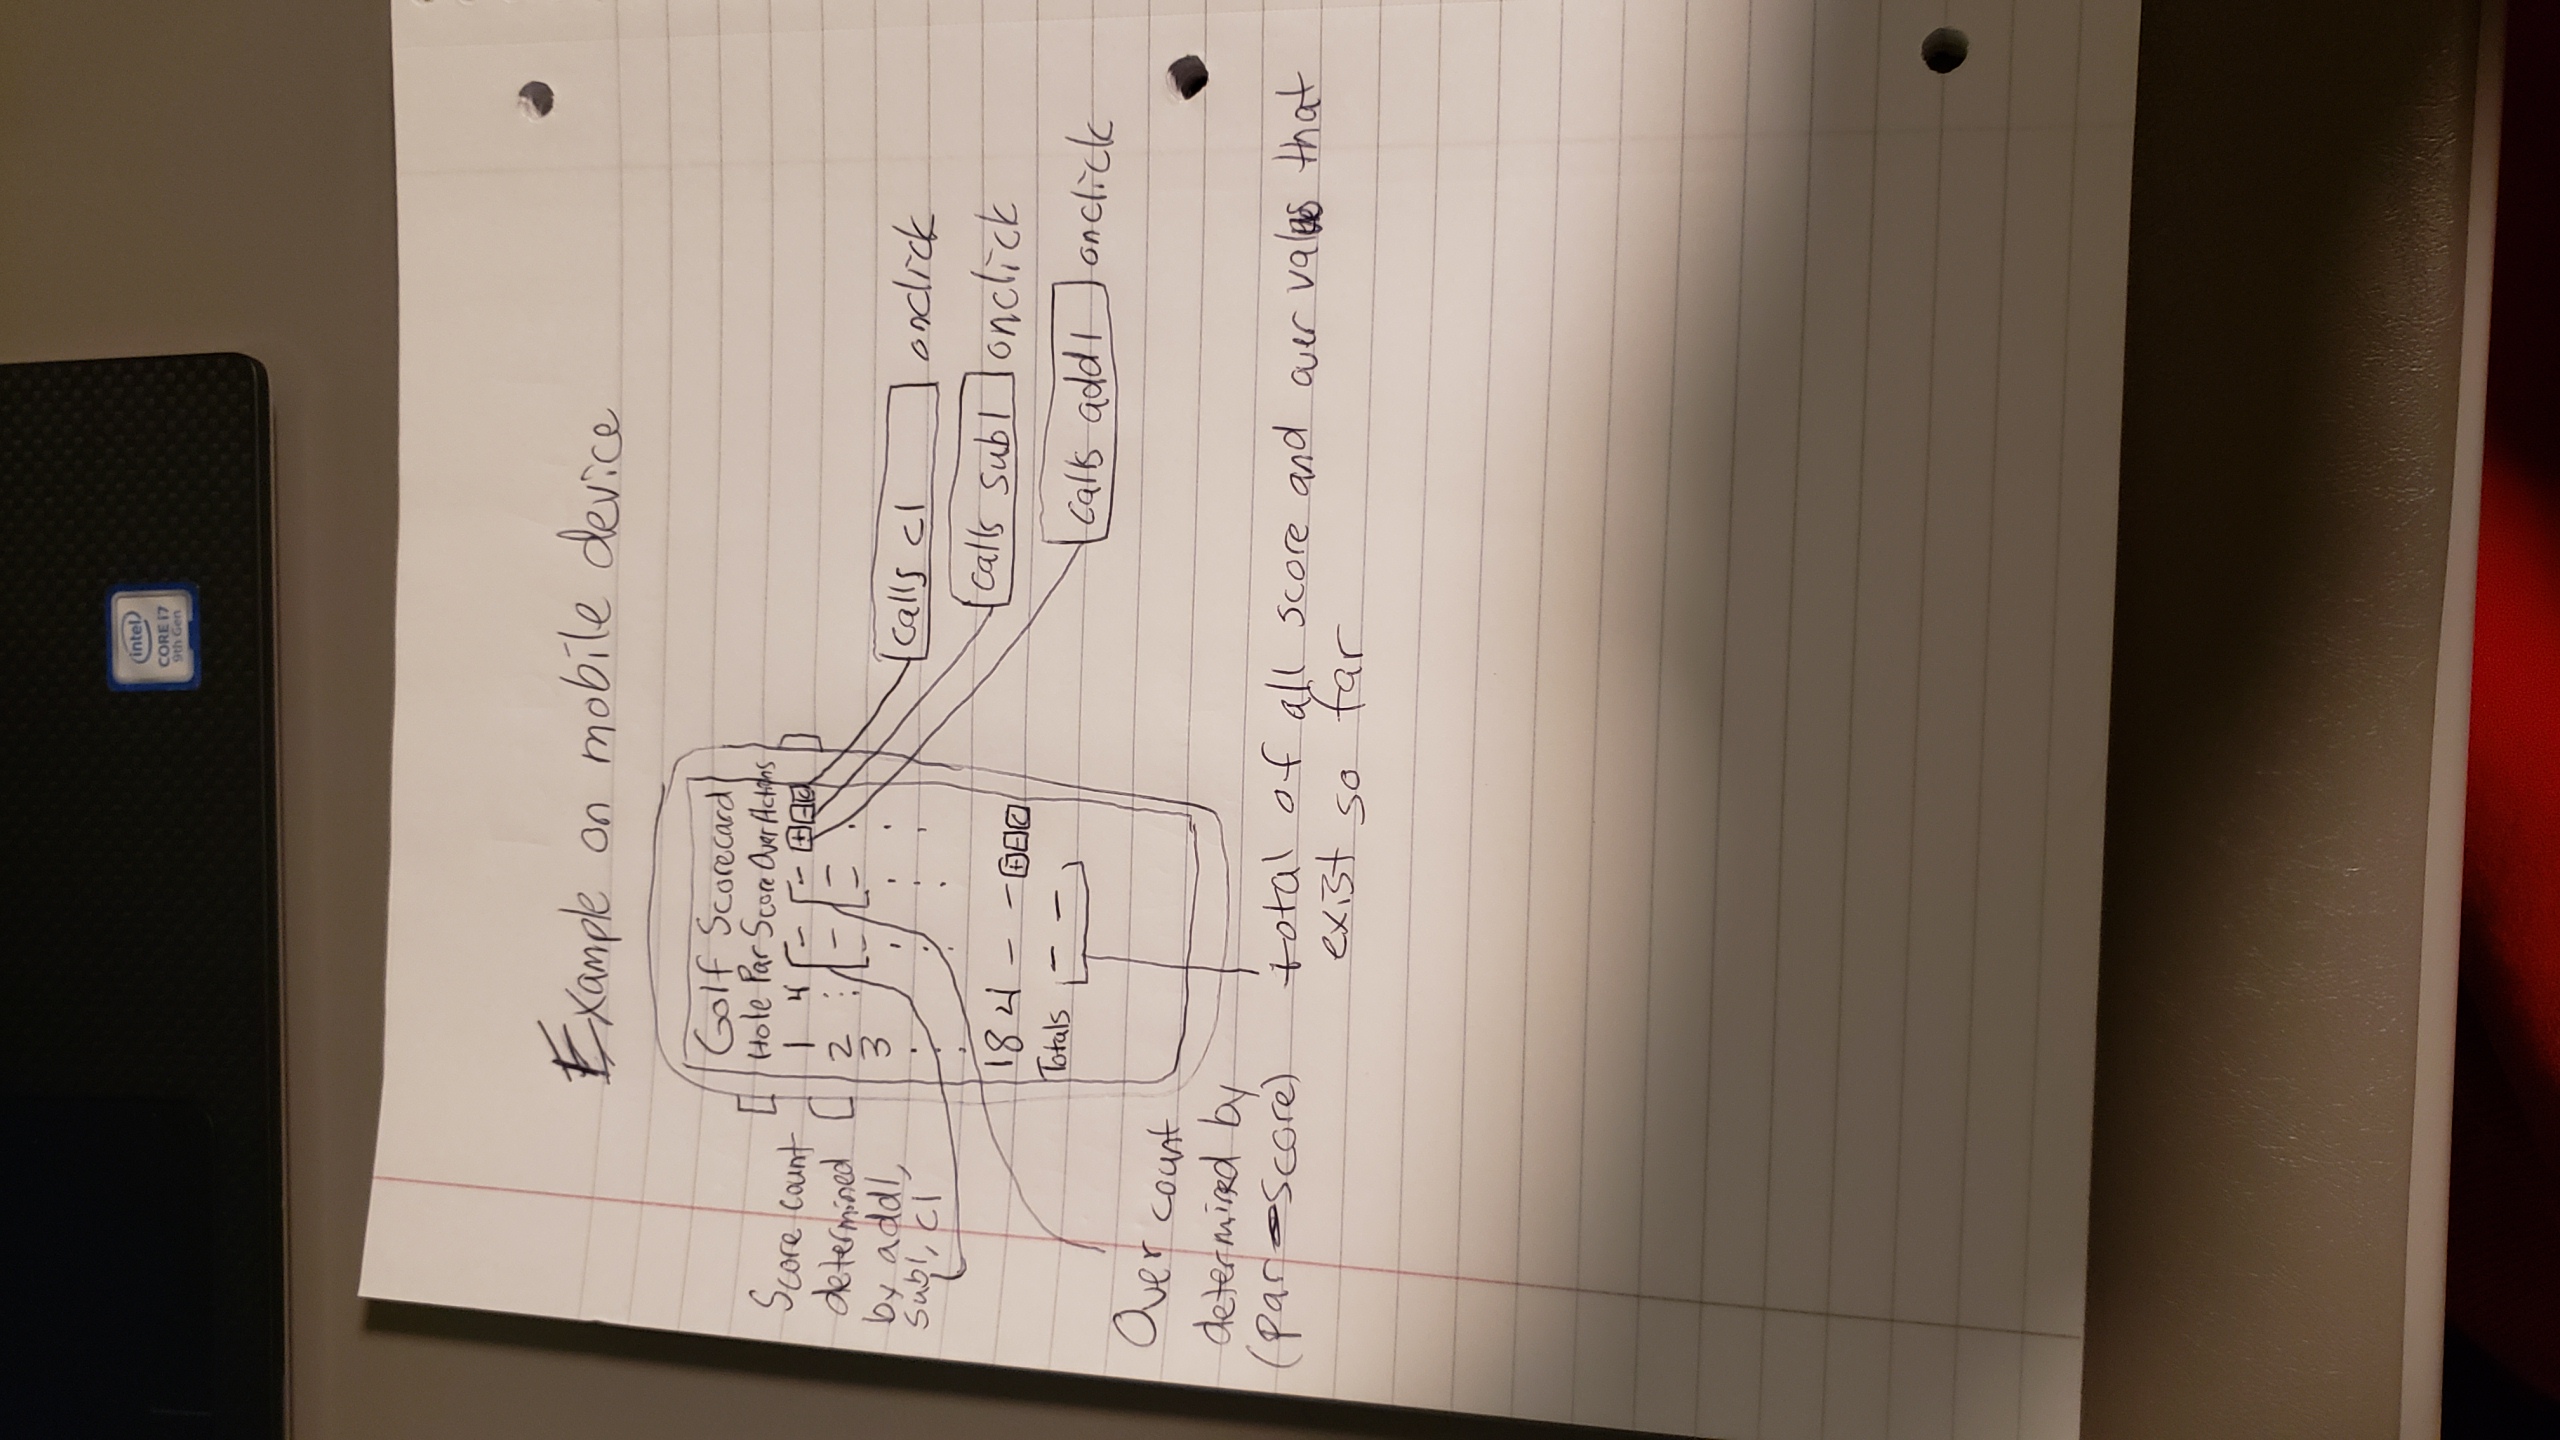 intel
CORE i7
9th Gen
Example on mobile device
Golf Scorecard
Hole Par Score Over Actions
1 4 - - + - C
2 - -
3 - -
18 4 - - + - C
Totals - -
Score count
determined
by add1,
sub1, c1
calls c1 onclick
calls sub1 onclick
calls add1 onclick
Over count
determined by
(par - score)
total of all score and over vales that
exist so far